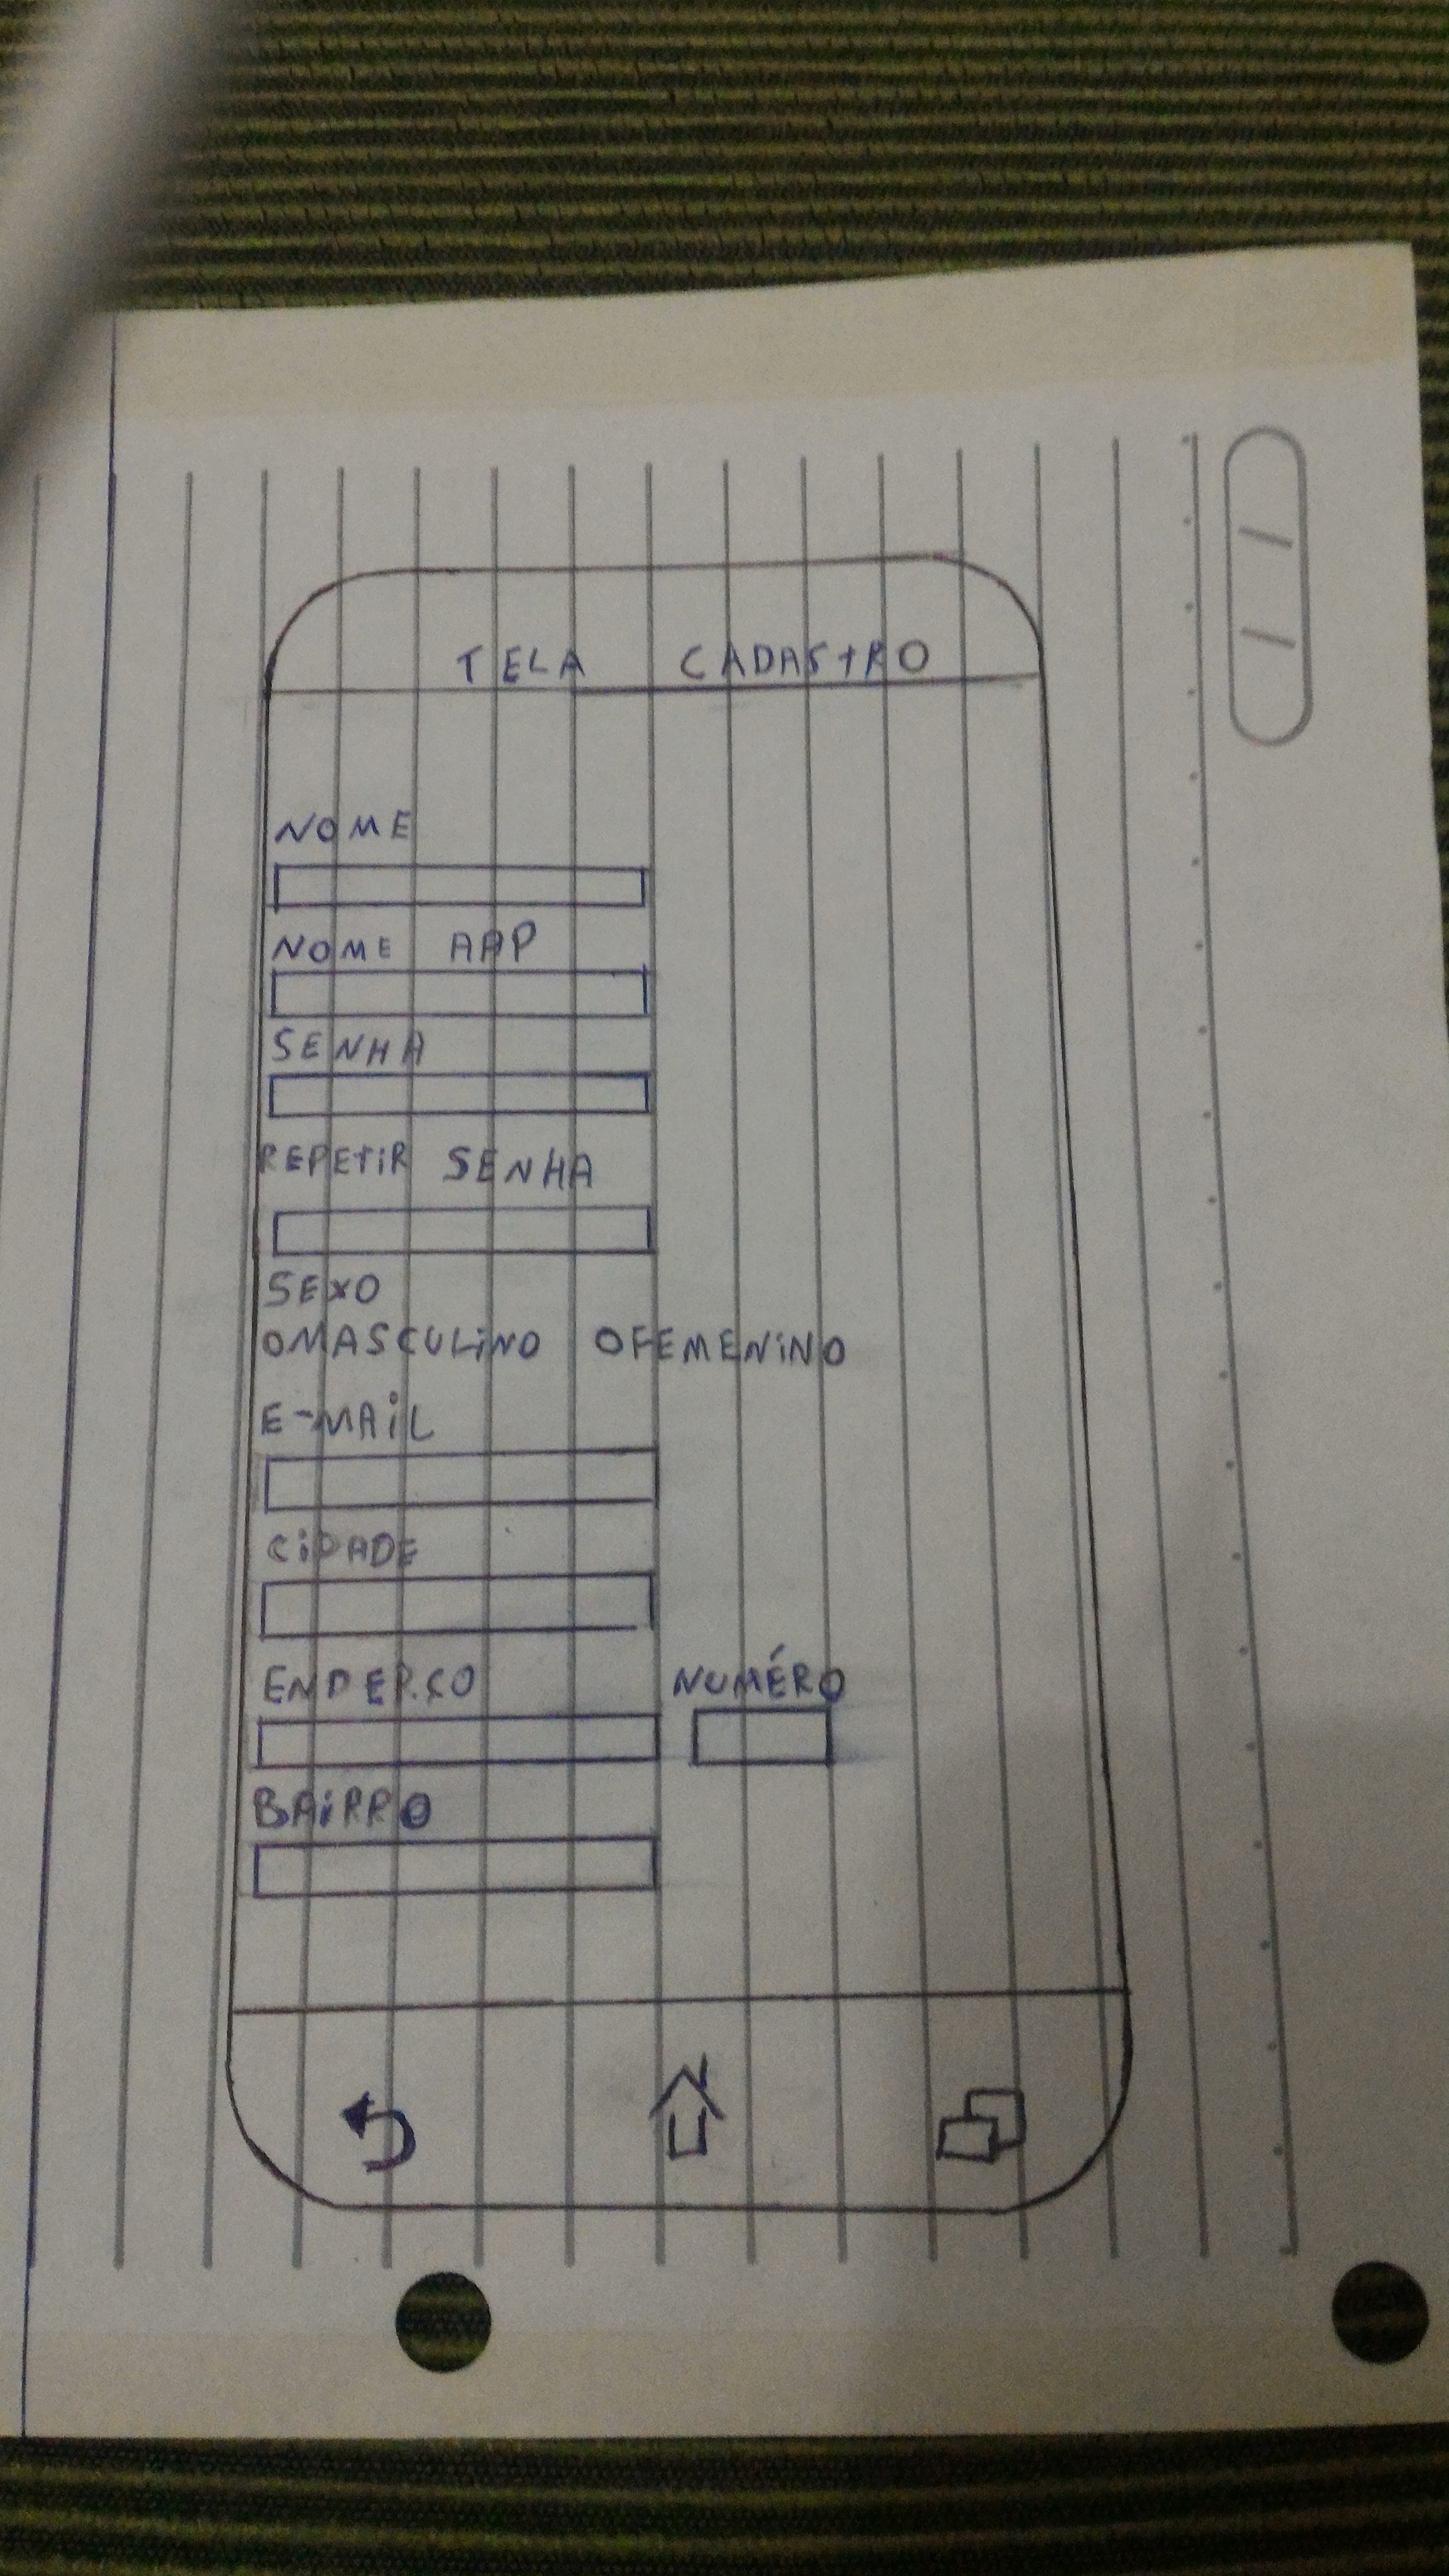 TELA CADASTRO
NOME
NOME AAP
SENHA
REPETIR SENHA
SEXO
O MASCULINO O FEMENINO
E-MAIL
CIDADE
ENDERÇO NUMÉRO
BAIRRO